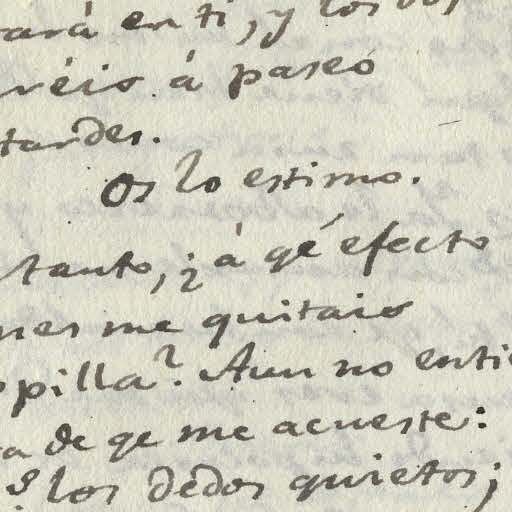 ará en ti, y los dos
réis á paseo
tardes.
Os lo estimo.
tanto, ¿á qé efecto
nes me quitais
opilla? Aun no enti
ra de qe me acueste:
los dedos quietos;